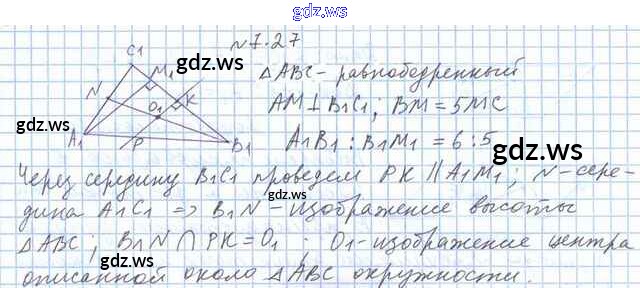 gdz.ws
№7.27
C1
M1
gdz.ws
△ABC - равнобедренный
N
O1
K
AM⊥B1C1; BM = 5MC
A1
P
B1
gdz.ws
A1B1 : B1M1 = 6:5
gdz.ws
Через середину B1C1 проведем PK || A1M1; N-сере-
дина A1C1 => B1N - изображение высоты
△ABC; B1N ∩ PK = O1; O1-изображение центра
описанной около △ABC окружности.
gdz.ws